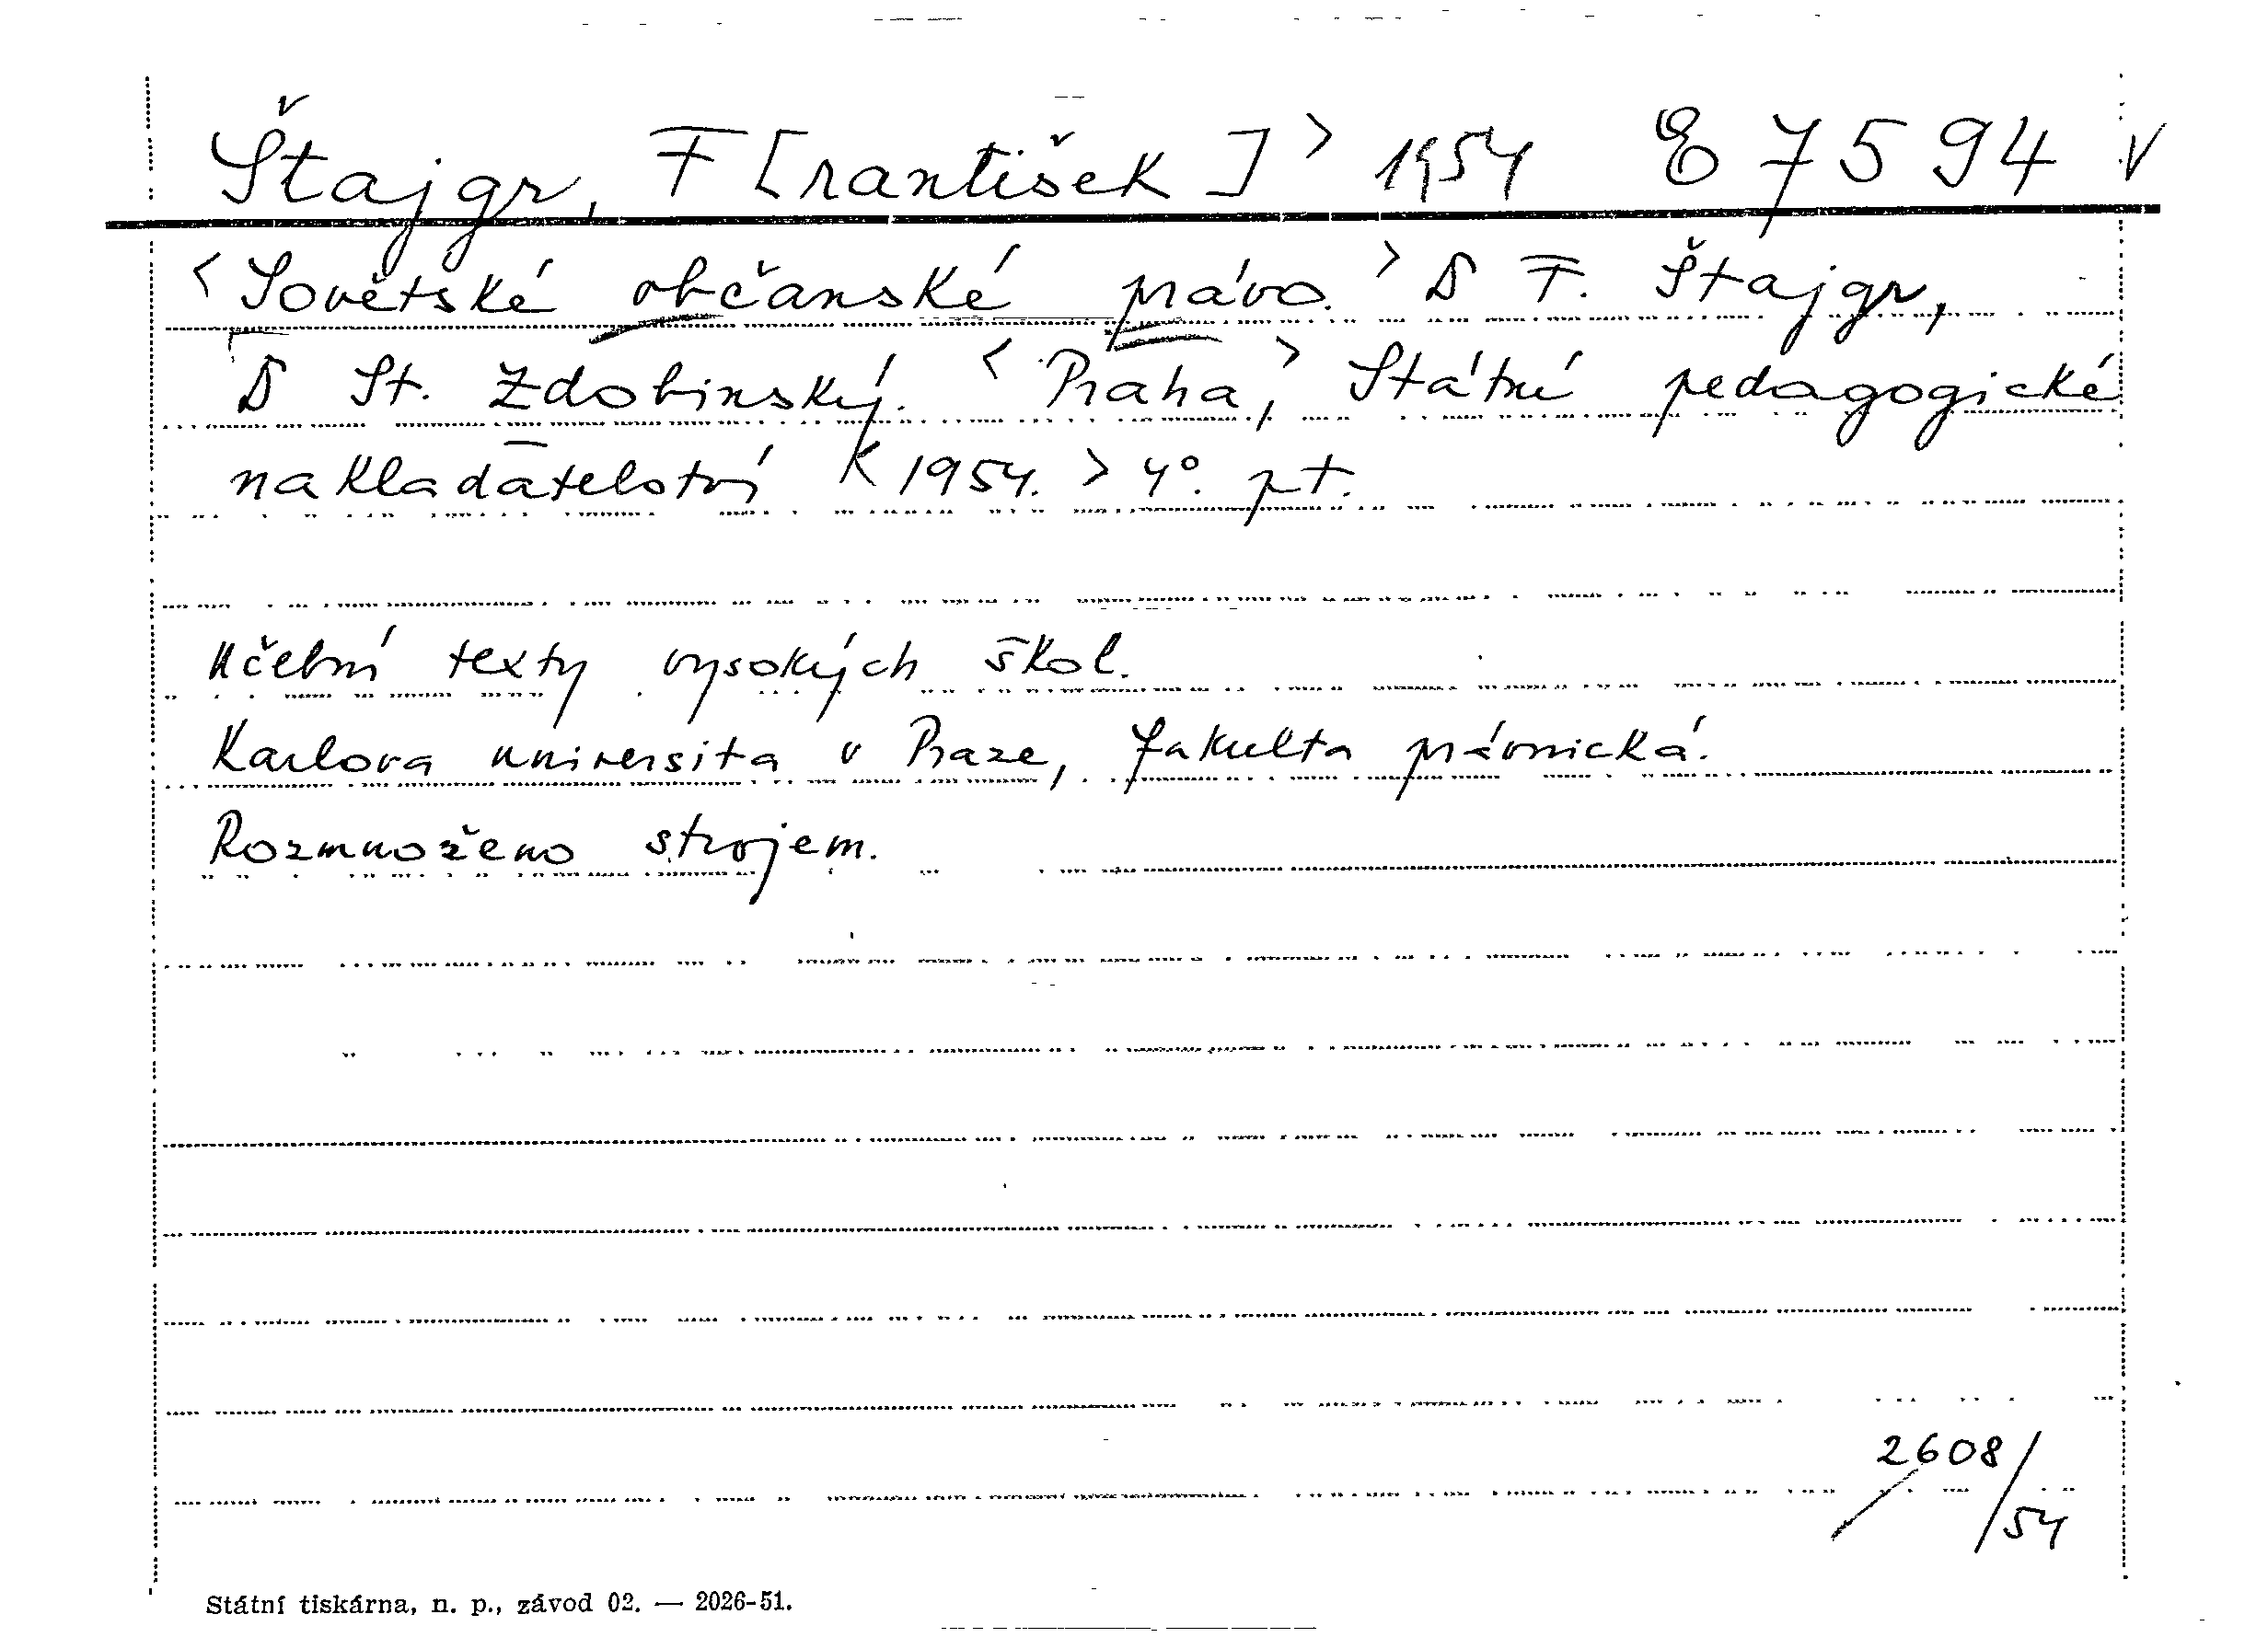 Štajgr, F[rantišek] > 1954 E 7594 V
< Sovětské občanské právo. > D F. Štajgr,
D St. Zdobinský. < Praha, > Státní pedagogické
nakladatelství < 1954. > 4°. pt.
Učební texty vysokých škol.
Karlova universita v Praze, fakulta právnická.
Rozmnoženo strojem.
2608/
54
Státní tiskárna, n. p., závod 02. — 2026-51.